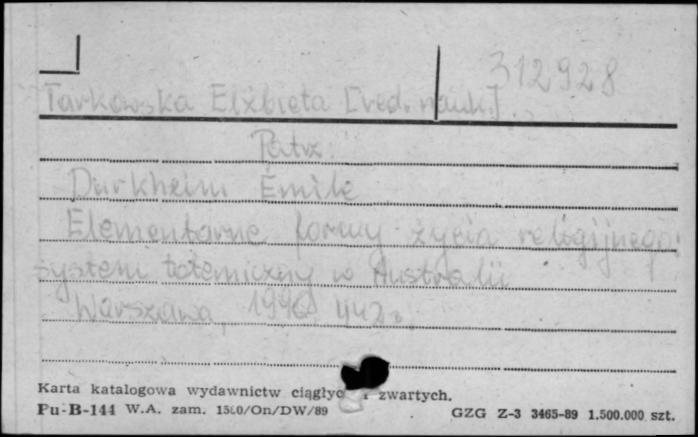 312928
Tarkowska Elżbieta [red. nauk.]
Patrz:
Durkheim Émile
Elementarne formy życia religijnego:
system totemiczny w Australii
Warszawa, 1990 442 s.
Karta katalogowa wydawnictw ciągłyc i zwartych.
Pu-B-144 W.A. zam. /On/DW/89 GZG Z-3 3465-89 1.500.000 szt.